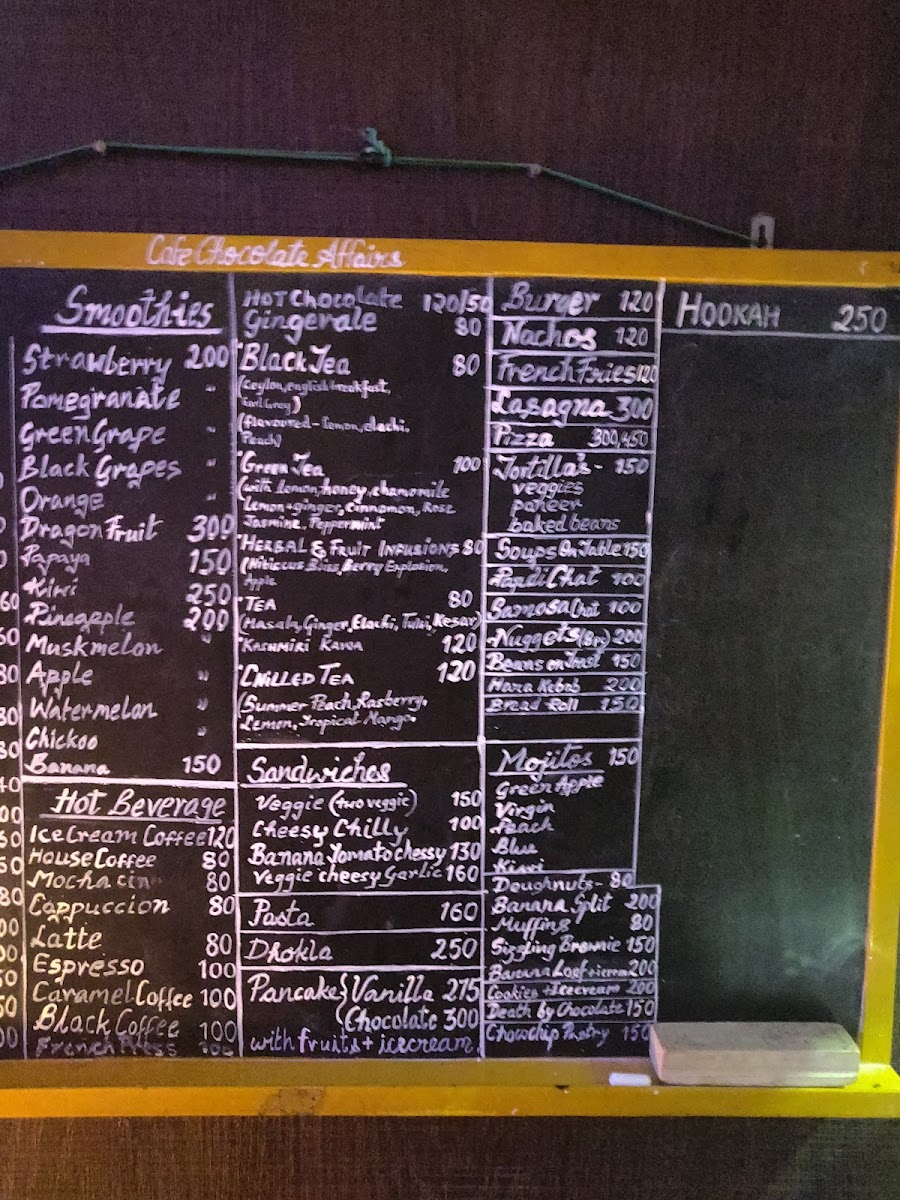 Cafe Chocolate Affairs
Smoothies
Strawberry 200
Pomegranate "
Green Grape "
Black Grapes "
Orange "
Dragon Fruit 300
Papaya 150
Kiwi 250
Pineapple 200
Muskmelon "
Apple "
Watermelon "
Chickoo "
Banana 150
Hot Beverage
Ice Cream Coffee 120
House Coffee 80
Mocha cin 80
Cappuccion 80
Latte 80
Espresso 100
Caramel Coffee 100
Black Coffee 100
French Press 100
HOT Chocolate 120/50
Gingerale 80
Black Tea 80
(Ceylon, english breakfast,
Earl Grey)
(flavoured - lemon, elachi,
Peach)
Green Tea 100
(with lemon, honey, chamomile
Lemon+ginger, Cinnamon, Rose
Jasmine, Peppermint
HERBAL & FRUIT INFUSIONS 80
(Hibiccus Bliss, Berry Explosion,
Apple
TEA 80
(Masala, Ginger, Elachi, Tulsi, Kesar)
KASHMIRI KAWA 120
CHILLED TEA 120
(Summer Peach, Rasberry,
Lemon, Tropical Mango.
Sandwiches
Veggie (two veggie) 150
Cheesy Chilly 100
Banana Tomato chessy 130
Veggie cheesy Garlic 160
Pasta 160
Dhokla 250
Pancake} Vanilla 275
(Chocolate 300
with fruits + icecream
Burger 120
Nachos 120
French Fries 120
Lasagna 300
Pizza 300,450
Tortilla's - 150
veggies
paneer
baked beans
Soups On Table 150
Papdi Chat 100
Samosa Chat 100
Nuggets (8p) 200
Beans on Toast 150
Maza Kebab 200
Bread Roll 150
Mojitos 150
Green Apple
Virgin
Peach
Blue
Kiwi
Doughnuts - 80
Banana Split 200
Muffins 80
Sizzling Brownie 150
Banana Loaf + icecream 200
Cookies + Icecream 200
Death by Chocolate 150
Chowchip Pastry 150
HOOKAH 250